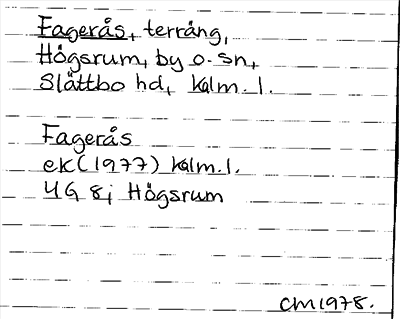 Fagerås, terräng,
Högsrum, by o. sn,
Slättbo hd, Kalm. l.
Fagerås
ek (1977) Kalm. l.
4G 8i Högsrum
CM 1978.